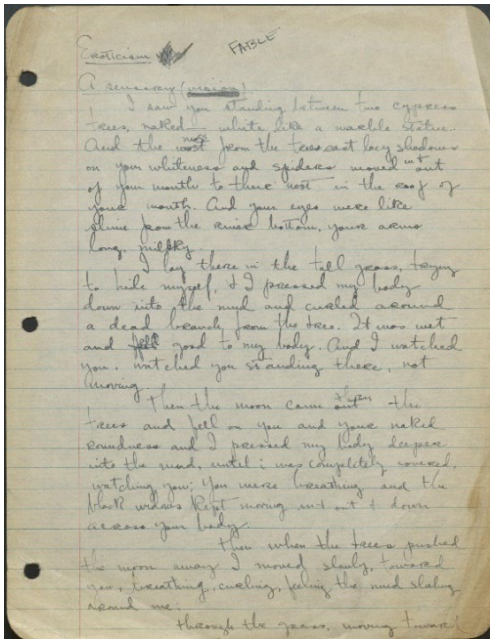 Eroticism
FABLE
A sensory (vision)
I saw you standing between two cypress
trees, naked white like a marble statue.
And the moss from the trees cast lacy shadows
on your whiteness and spiders moved in & out
of your mouth to their nest in the roof of
your mouth. And your eyes were like
slime from the river bottom, your arms
long, milky.
I lay there in the tall grass, trying
to hide myself, & I pressed my body
down into the mud and curled around
a dead branch from the tree. It was wet
and felt good to my body. And I watched
you, watched you standing there, not
moving.
Then the moon came the
trees and fell on you and your naked
roundness and I pressed my body deeper
into the mud, until i was completely covered,
watching you; You were breathing and the
black widows kept moving in & out & down
across your body
then when the trees pushed
the moon away I moved slowly, toward
you, breathing, curling, feeling the mud sliding
around me.
through the grass, moving toward